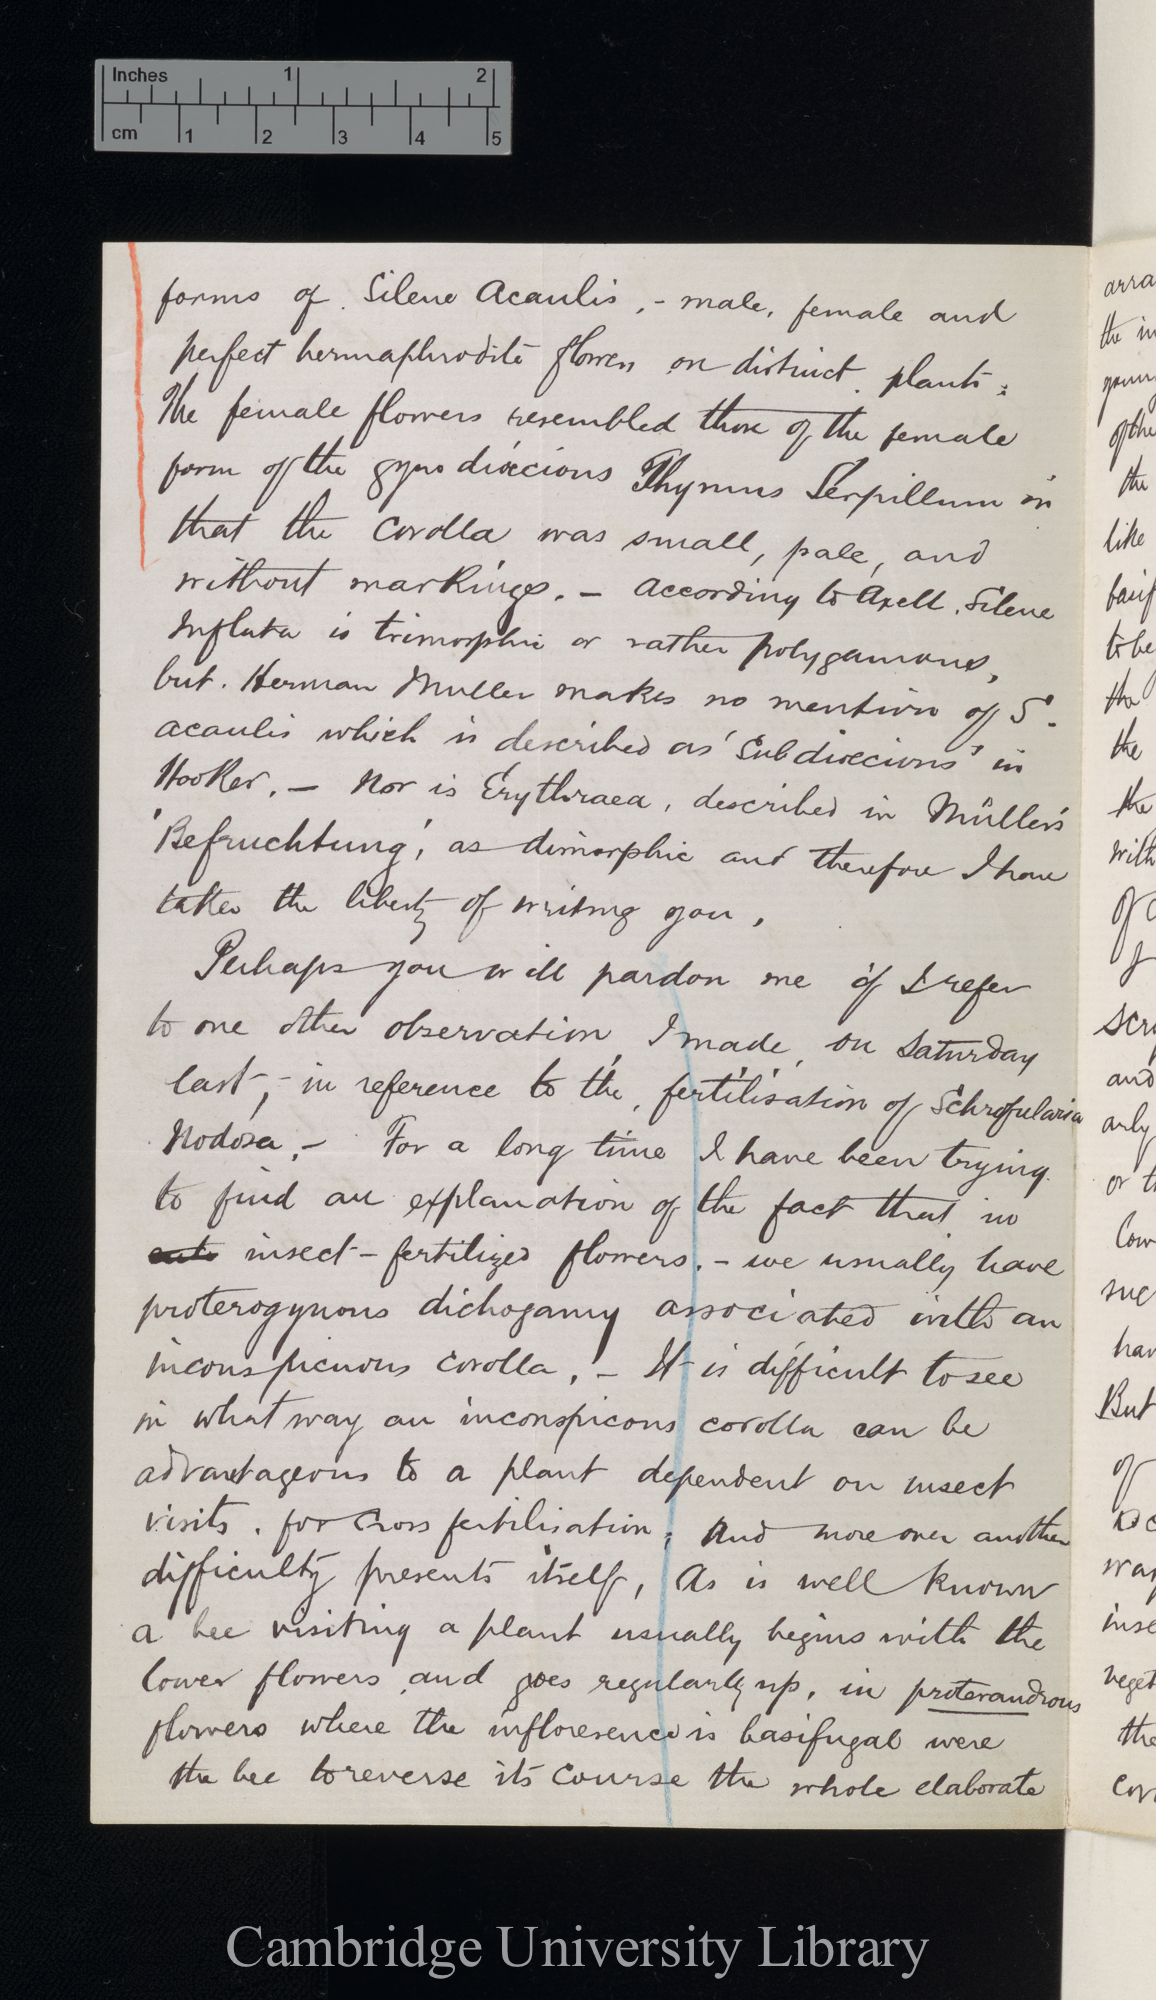 Inches 1 2
cm 1 2 3 4 5
forms of Silene Acaulis, - male, female and
perfect hermaphrodite flowers on distinct plants:
The female flowers resembled those of the female
form of the gynodiœcious Thymus Serpillum in
that the corolla was small, pale, and
without markings. — According to Axell, Silene
Inflata is trimorphic or rather polygamous,
but Herman Muller makes no mention of S.
acaulis which is described as 'Subdiœcious' in
Hooker. — Nor is Erythraea, described in Müller's
'Befruchtung', as dimorphic and therefore I have
taken the liberty of writing you,
Perhaps you will pardon me if I refer
to one other observation, I made, on Saturday
last, - in reference to the fertilisation of Schrofularia
Nodosa. - For a long time I have been trying
to find an explanation of the fact that in
insect-fertilized flowers. - we usually have
proterogynous dichogamy associated with an
inconspicuous corolla, - It is difficult to see
in what way an inconspicous corolla can be
advantageous to a plant dependent on insect
visits, for cross fertilisation; And more over another
difficulty presents itself, As is well known
a bee visiting a plant usually begins with the
lower flowers and goes regularly up, in proterandrous
flowers where the infloresence is basifugal were
the bee to reverse its course the whole elaborate
arra
the in
of the
the
like
basif
to be
the
the
the
with
of
scr
and
arly
or t
suc
hav
But
of
way
inse
veget
the
Cambridge University Library